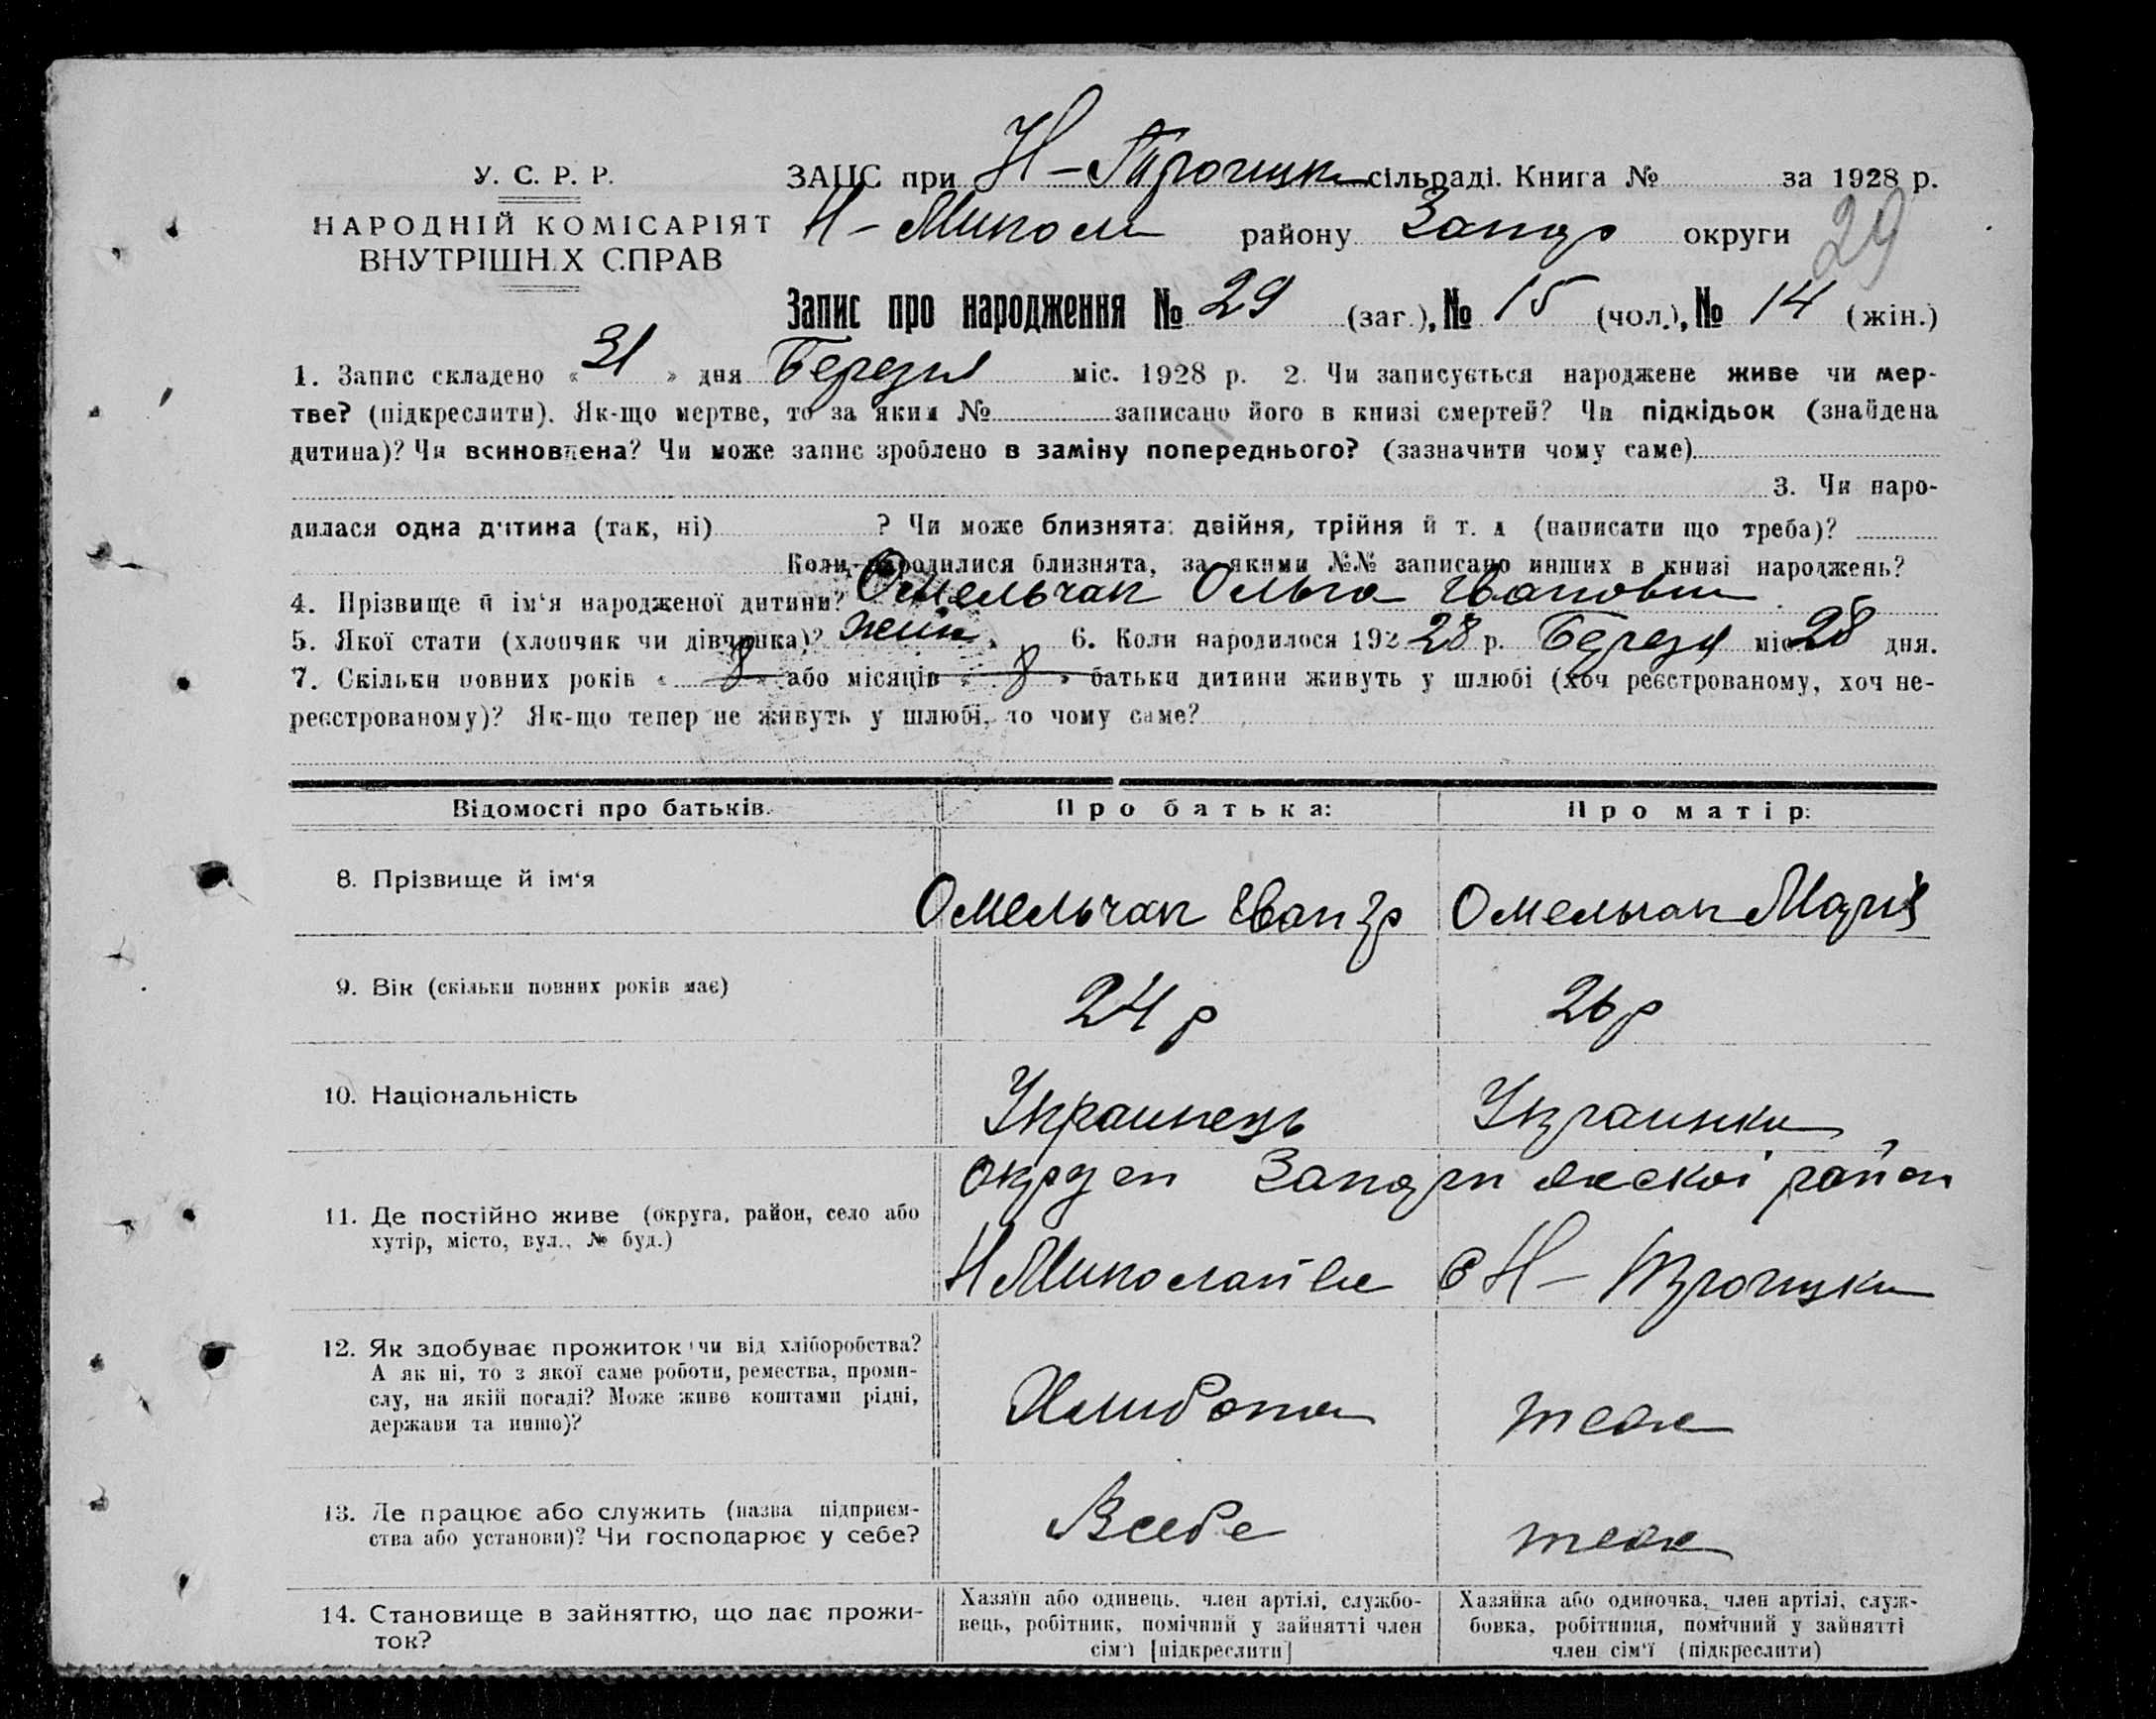 У. С. Р. Р.
НАРОДНІЙ КОМІСАРІЯТ
ВНУТРІШНІХ СПРАВ
ЗАЦС при Н-Троицьк сільраді. Книга № за 1928 р.
Н-Микола району Запор округи
29
Запис про народження № 29 (заг.), № 15 (чол.), № 14 (жін.)
1. Запис складено «31» дня Березня міс. 1928 р. 2. Чи записується народжене живе чи мер-
тве? (підкреслити). Як-що мертве, то за яким № записано його в книзі смертей? Чи підкідьок (знайдена
дитина)? Чи всиновлена? Чи може запис зроблено в заміну попереднього? (зазначити чому саме)
3. Чи наро-
дилася одна дитина (так, ні) ? Чи може близнята: двійня, трійня й т. д (написати що треба)?
Коли народилися близнята, за якими №№ записано инших в книзі народжень?
4. Прізвище й ім‘я народженої дитини? Омельчак Ольга Івановна
5. Якої стати (хлопчик чи дівчинка)? жін. 6. Коли народилося 192 28 р. Березня міс 28 дня.
7. Скільки повних років « 8 » або місяців « 8 » батьки дитини живуть у шлюбі (хоч реєстрованому, хоч не-
реєстрованому)? Як-що тепер не живуть у шлюбі, то чому саме?
Відомості про батьків.
Про батька:
Про матір:
8. Прізвище й ім‘я
Омельчак Іван Гр
Омельчак Марія
9. Вік (скільки повних років має)
24 р
26 р
10. Національність
Украинець
Украинка
11. Де постійно живе (округа, район, село або
хутір, місто, вул., № буд.)
Округи Запорижскоі район
Н Миколаівка С Н-Троицка
12. Як здобуває прожиток чи від хліборобства?
А як ні, то з якої саме роботи, ремества, проми-
слу, на якій посаді? Може живе коштами рідні,
держави та инше)?
теж
13. Де працює або служить (назва підприєм-
ства або установи)? Чи господарює у себе?
Всебе
теж
14. Становище в зайняттю, що дає прожи-
ток?
Хазяїн або одинець, член артілі, службо-
вець, робітник, помічний у зайнятті член
сім‘ї [підкреслити]
Хазяйка або одиночка, член артілі, служ-
бовка, робітниця, помічний у зайнятті
член сім‘ї (підкреслити)